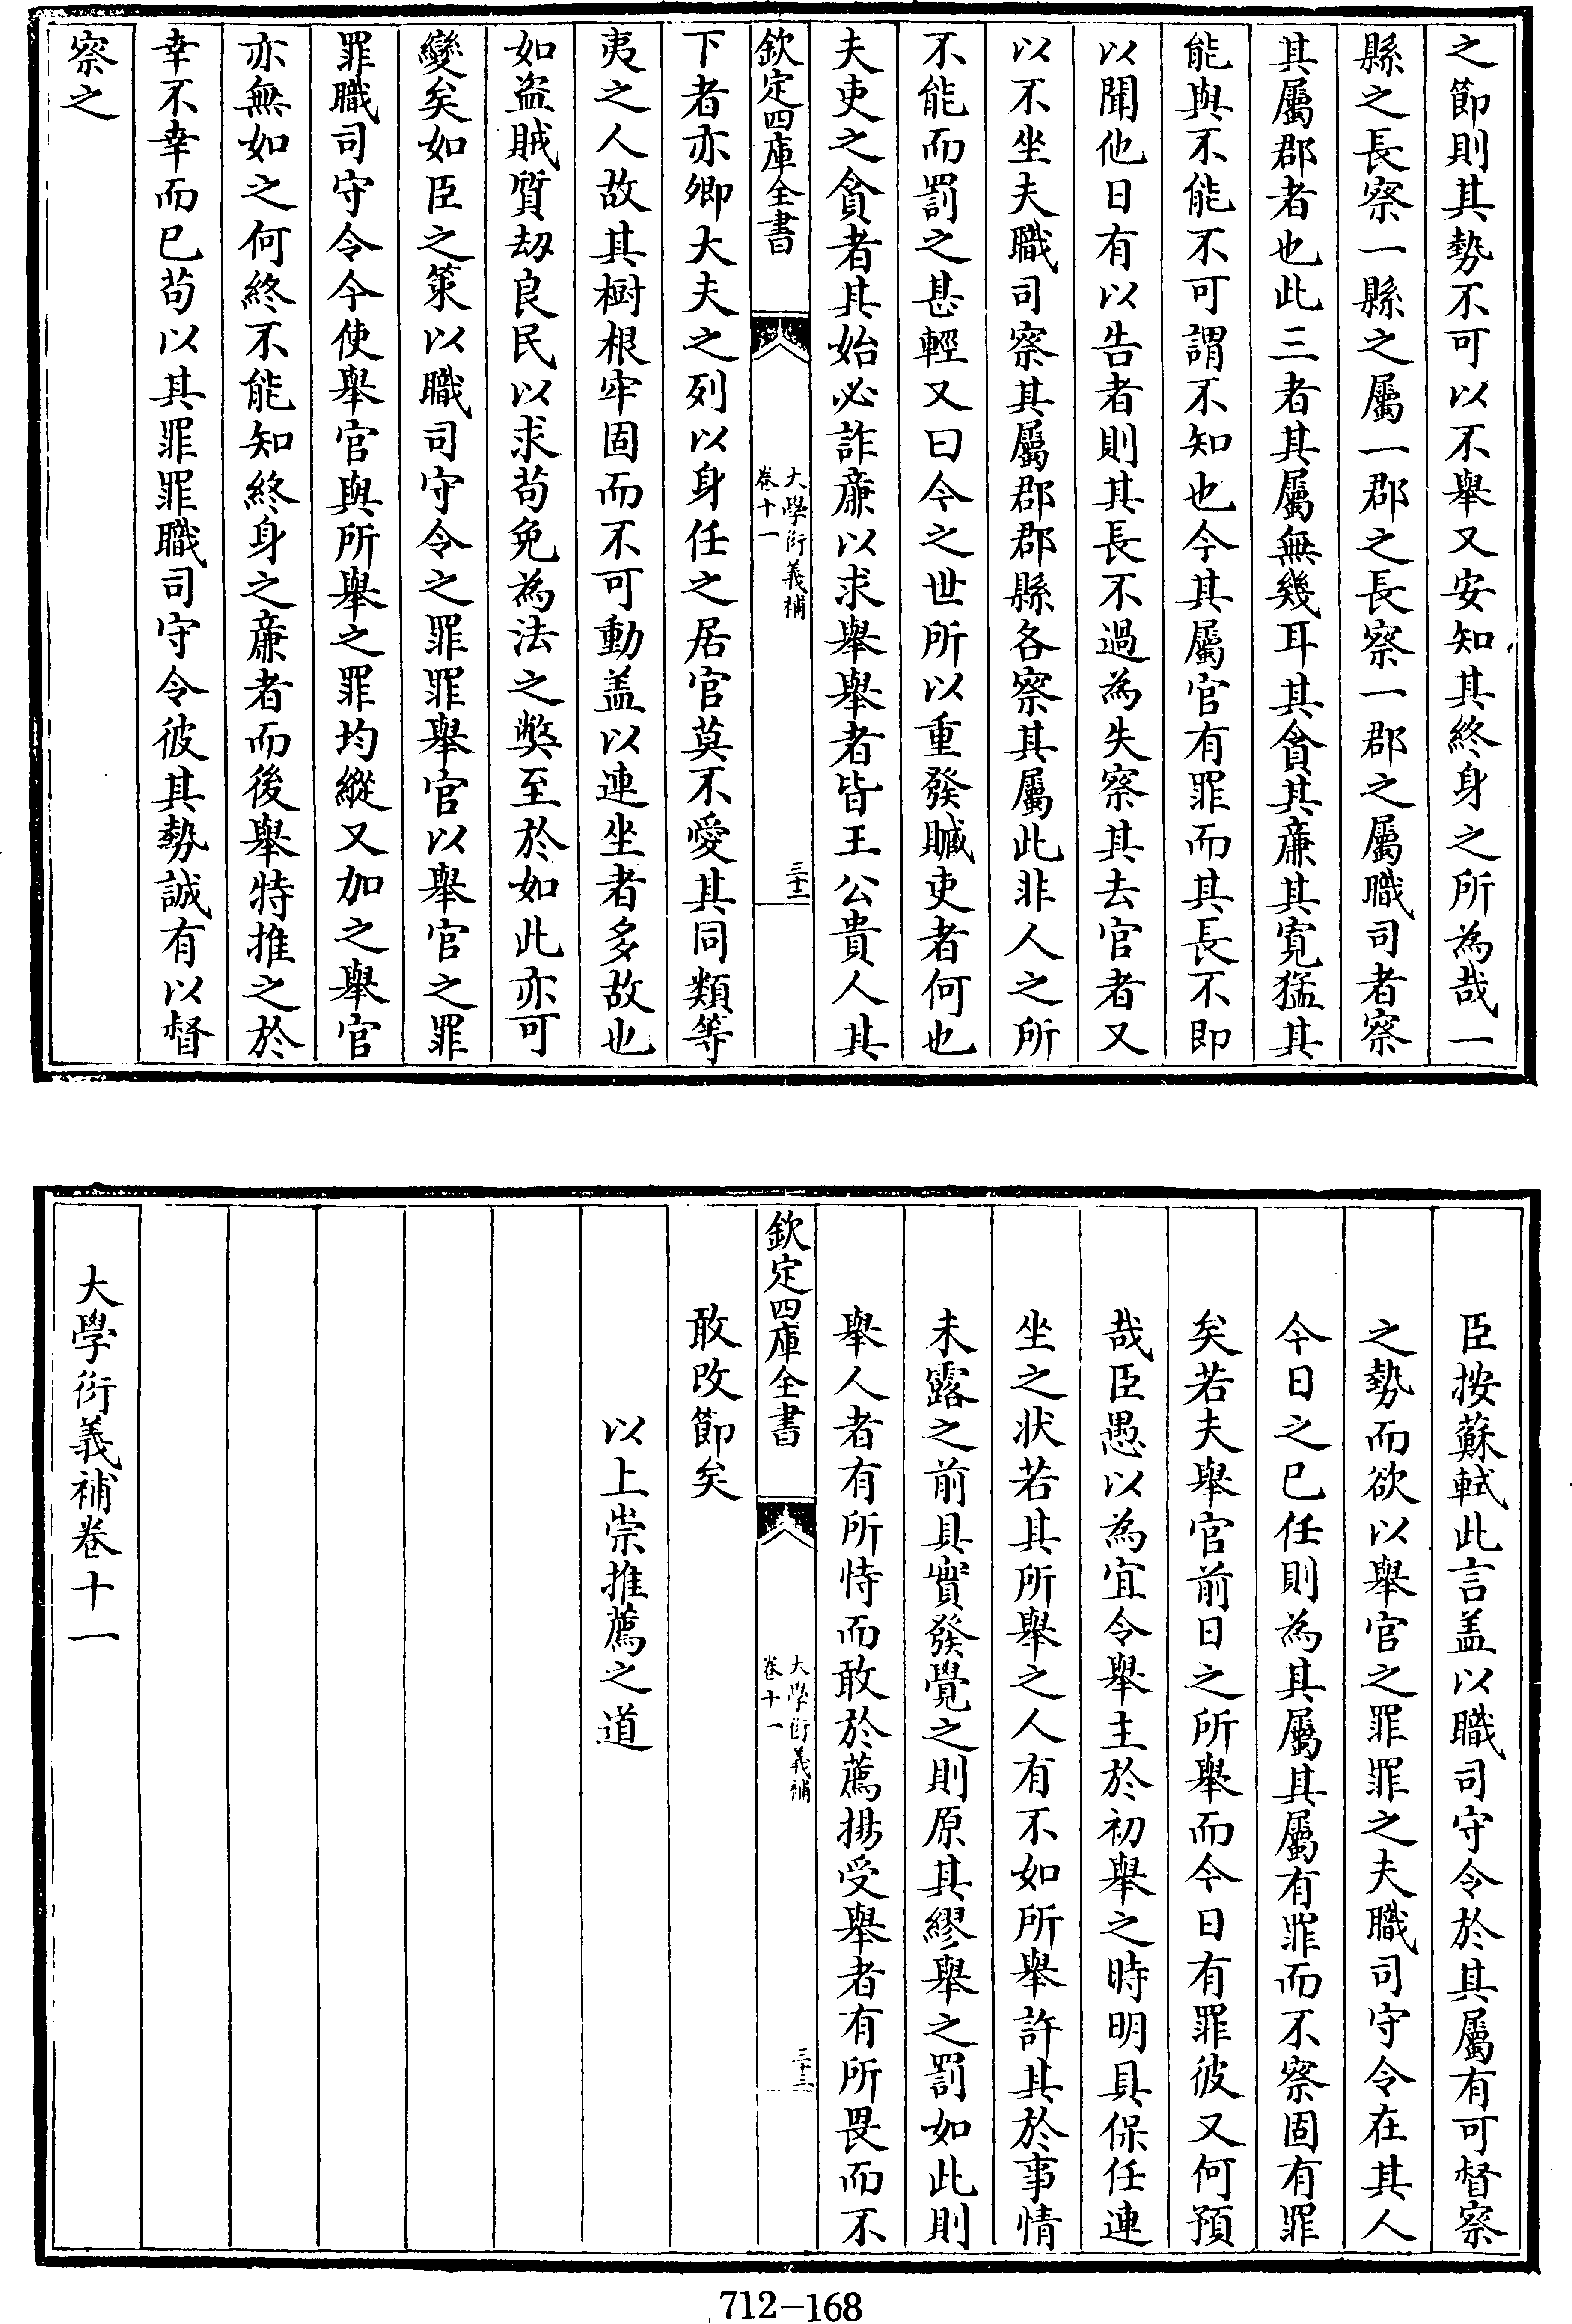 之節則其勢不可以不舉又安知其終身之所為哉一
縣之長察一縣之屬一郡之長察一郡之屬職司者察
其屬郡者也此三者其屬無幾耳其貪其廉其寬猛其
能與不能不可謂不知也今其屬官有罪而其長不即
以聞他日有以告者則其長不過為失察其去官者又
以不坐夫職司察其屬郡郡縣各察其屬此非人之所
不能而罰之甚輕又曰今之世所以重發贓吏者何也
夫吏之貪者其始必詐廉以求舉舉者皆王公貴人其
欽定四庫全書
大學衍義補
卷十一
三十二
下者亦卿大夫之列以身任之居官莫不愛其同類等
夷之人故其樹根牢固而不可動盖以連坐者多故也
如盜賊質劫良民以求苟免為法之弊至於如此亦可
變矣如臣之策以職司守令之罪罪舉官以舉官之罪
罪職司守令今使舉官與所舉之罪均縱又加之舉官
亦無如之何終不能知終身之廉者而後舉特推之於
幸不幸而已苟以其罪罪職司守令彼其勢誠有以督
察之
臣按蘇軾此言盖以職司守令於其屬有可督察
之勢而欲以舉官之罪罪之夫職司守令在其人
今日之已任則為其屬其屬有罪而不察固有罪
矣若夫舉官前日之所舉而今日有罪彼又何預
哉臣愚以為宜令舉主於初舉之時明具保任連
坐之狀若其所舉之人有不如所舉許其於事情
未露之前具實發覺之則原其繆舉之罰如此則
舉人者有所恃而敢於薦揚受舉者有所畏而不
欽定四庫全書
大學衍義補
卷十一
三十三
敢改節矣
以上崇推薦之道
大學衍義補卷十一
712-168